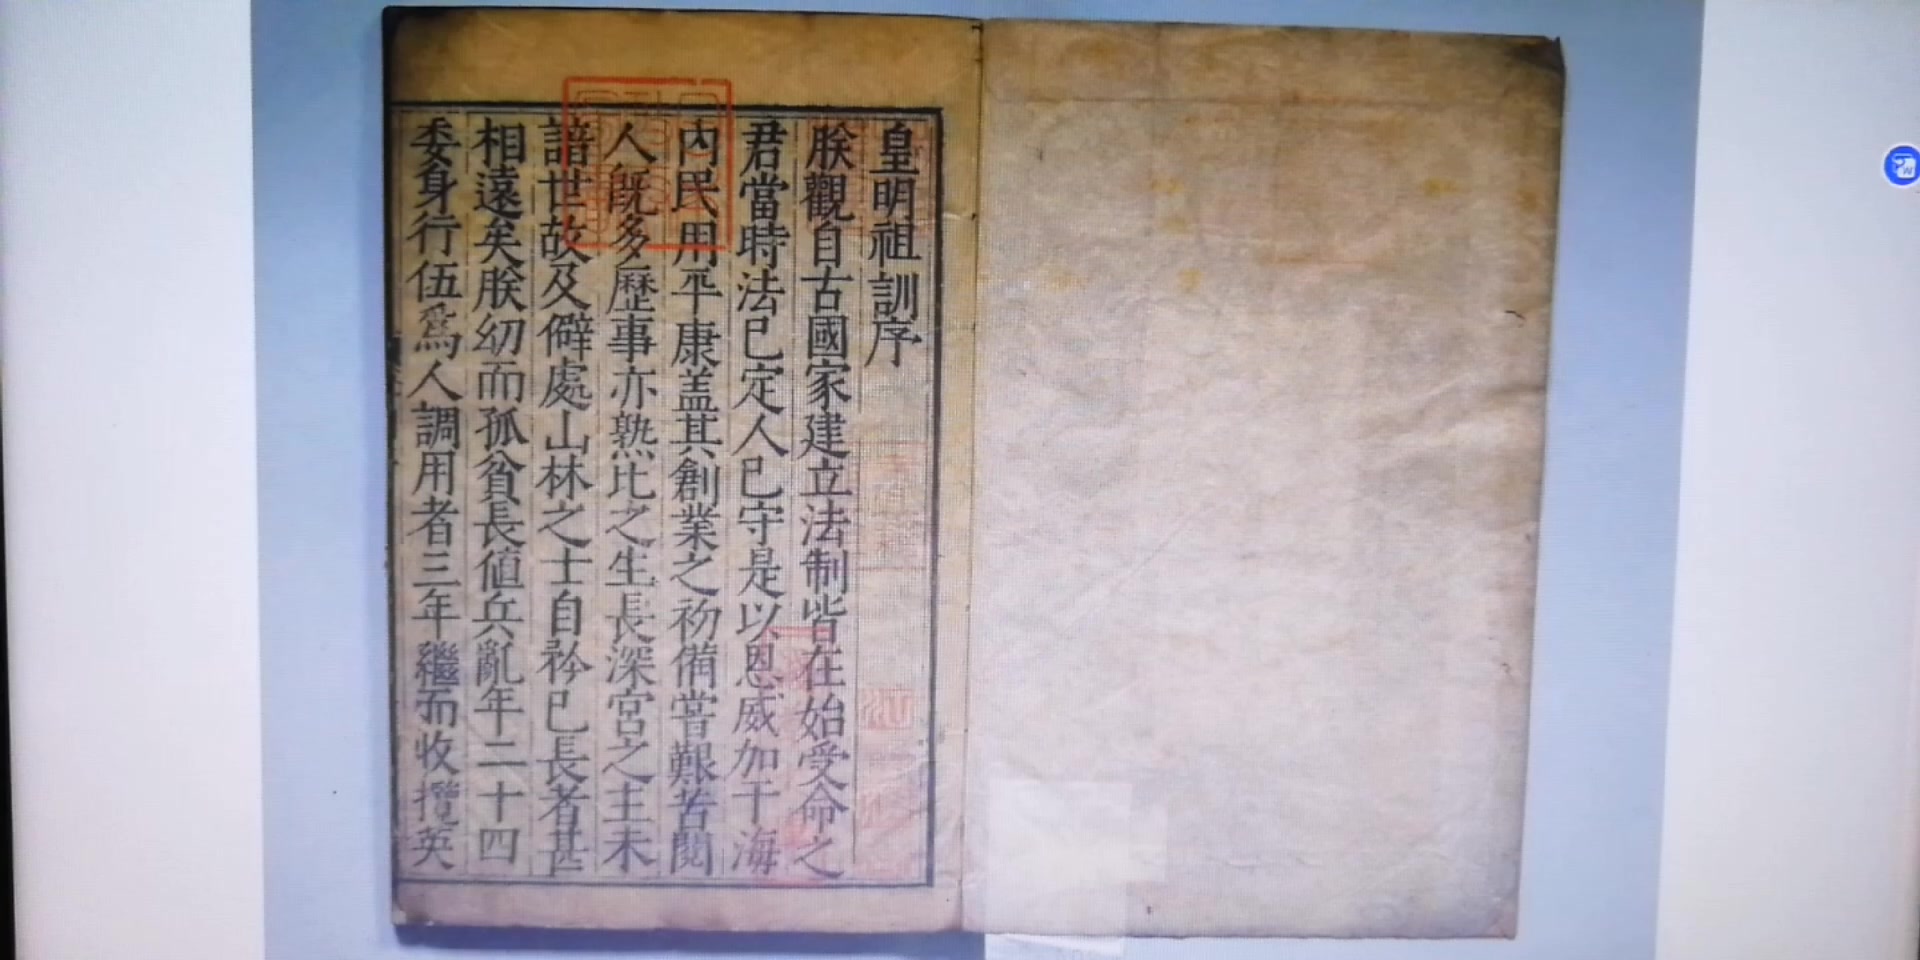 皇明祖訓序
朕觀自古國家建立法制皆在始受命之
君當時法已定人已守是以恩威加于海
內民用平康盖其創業之初備嘗艱苦閱
人旣多歷事亦熟比之生長深宮之主未
諳世故及僻處山林之士自矜己長者甚
相遠矣朕幼而孤貧長値兵亂年二十四
委身行伍爲人調用者三年繼而收攬英